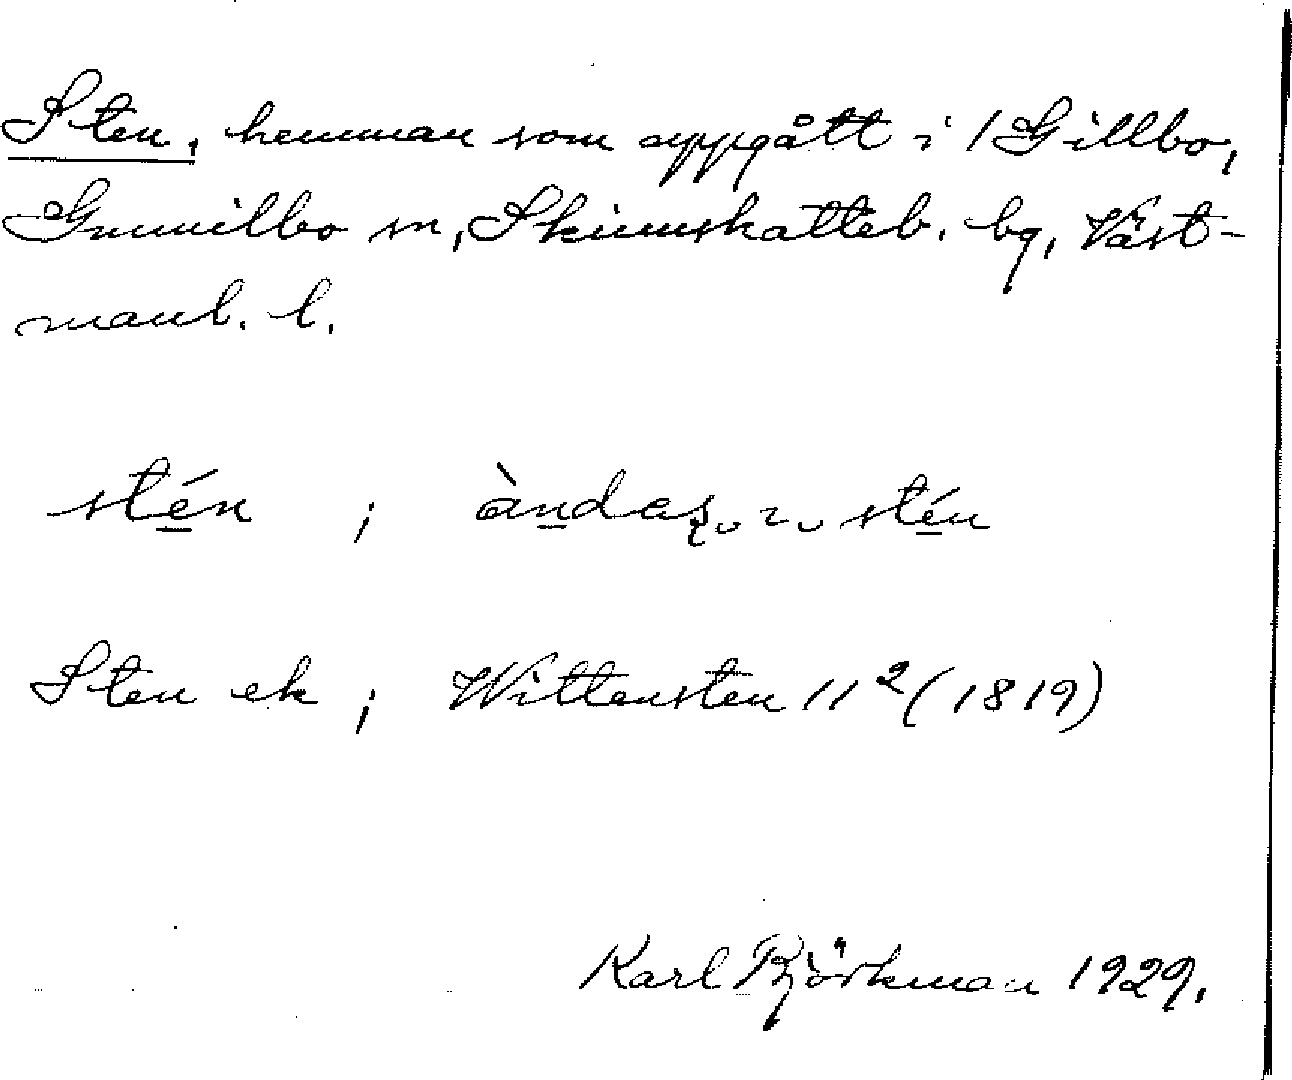 Sten, hemman som uppgått i 1 Gillbo,
Gunnilbo sn, Skinnskatteb. bg, Väst-
manl. l.
stén ; àndaʂ stén
Sten ek ; Wittensten 11² (1819)
Karl Björkman 1929.